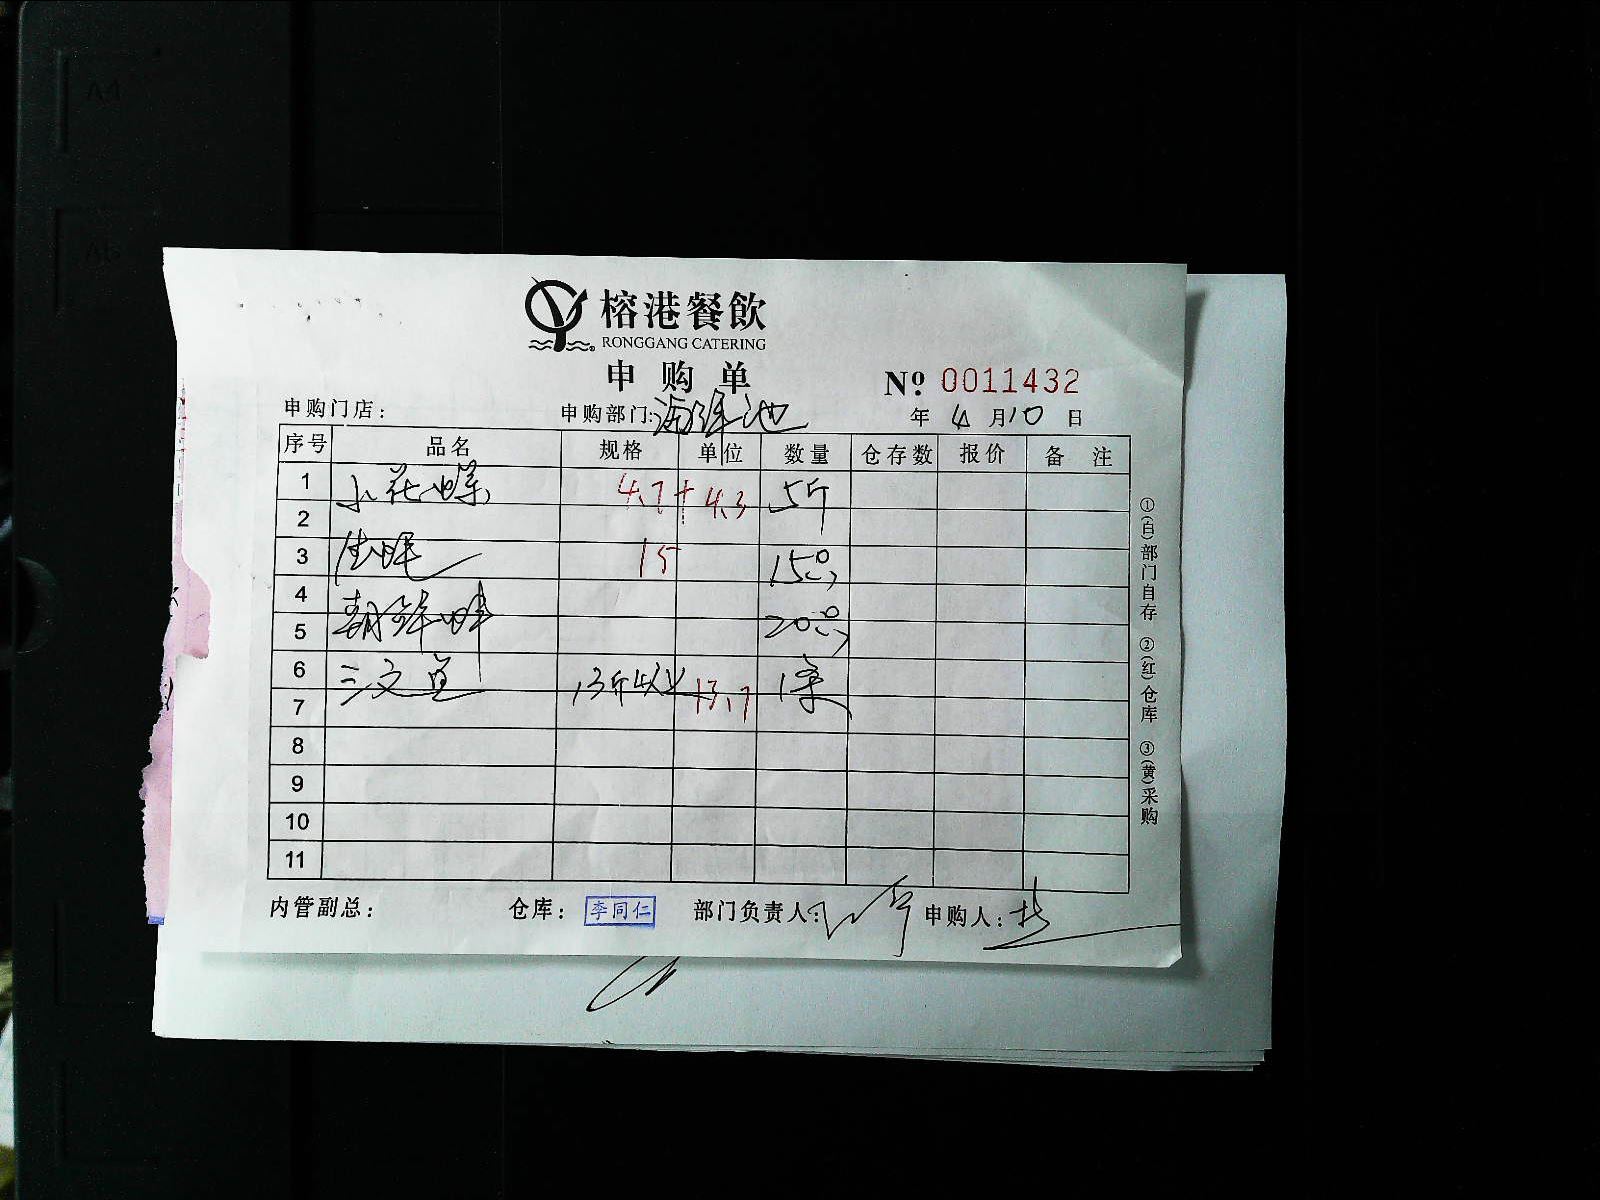 榕港餐飲
RONGGANG CATERING
申购单
№ 0011432
申购门店： 申购部门:海鲜池 年 4 月 10 日
序号 品名 规格 单位 数量 仓存数 报价 备 注
1 小花螺 4.7 + 4.3 5斤
2
3 生蚝 15 15只
4
5 朝鲜蚌 20只
6 三文鱼 13斤以上 13.7 1条
7
8
9
10
11
①(白)部门自存 ②(红)仓库 ③(黄)采购
内管副总： 仓库： 李同仁 部门负责人： 申购人：
A4
A5